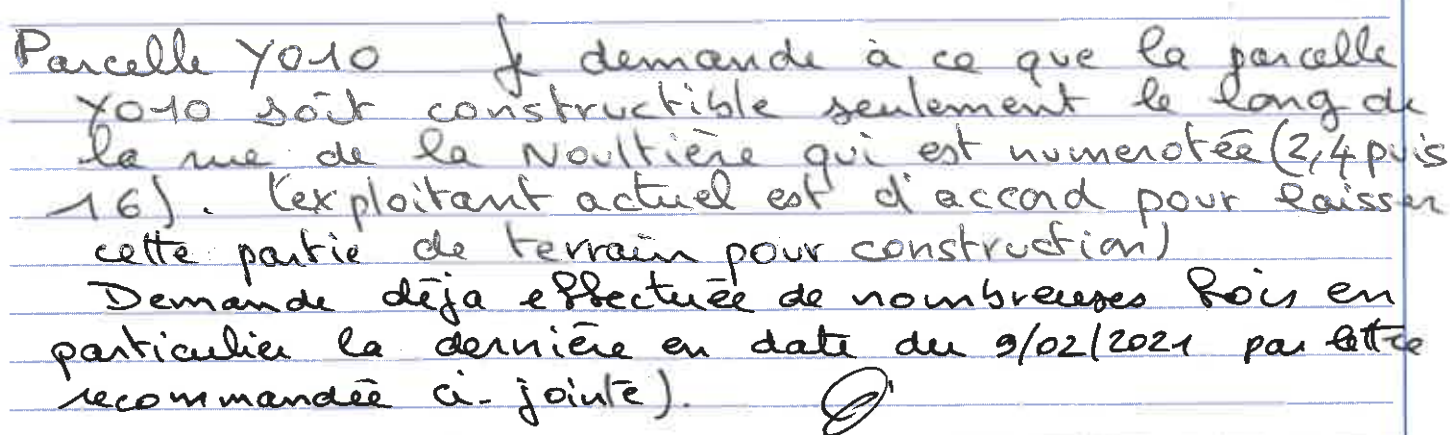 Parcelle YO10 Je demande à ce que la parcelle
YO10 soit constructible seulement le long de
la rue de la Noultière qui est numerotée (2,4 puis
16). (exploitant actuel est d'accord pour laisser
cette partie de terrain pour construction)
Demande déja effectuée de nombreuses fois en
particulier la dernière en date du 9/02/2021 par lettre
recommandée ci-jointe).